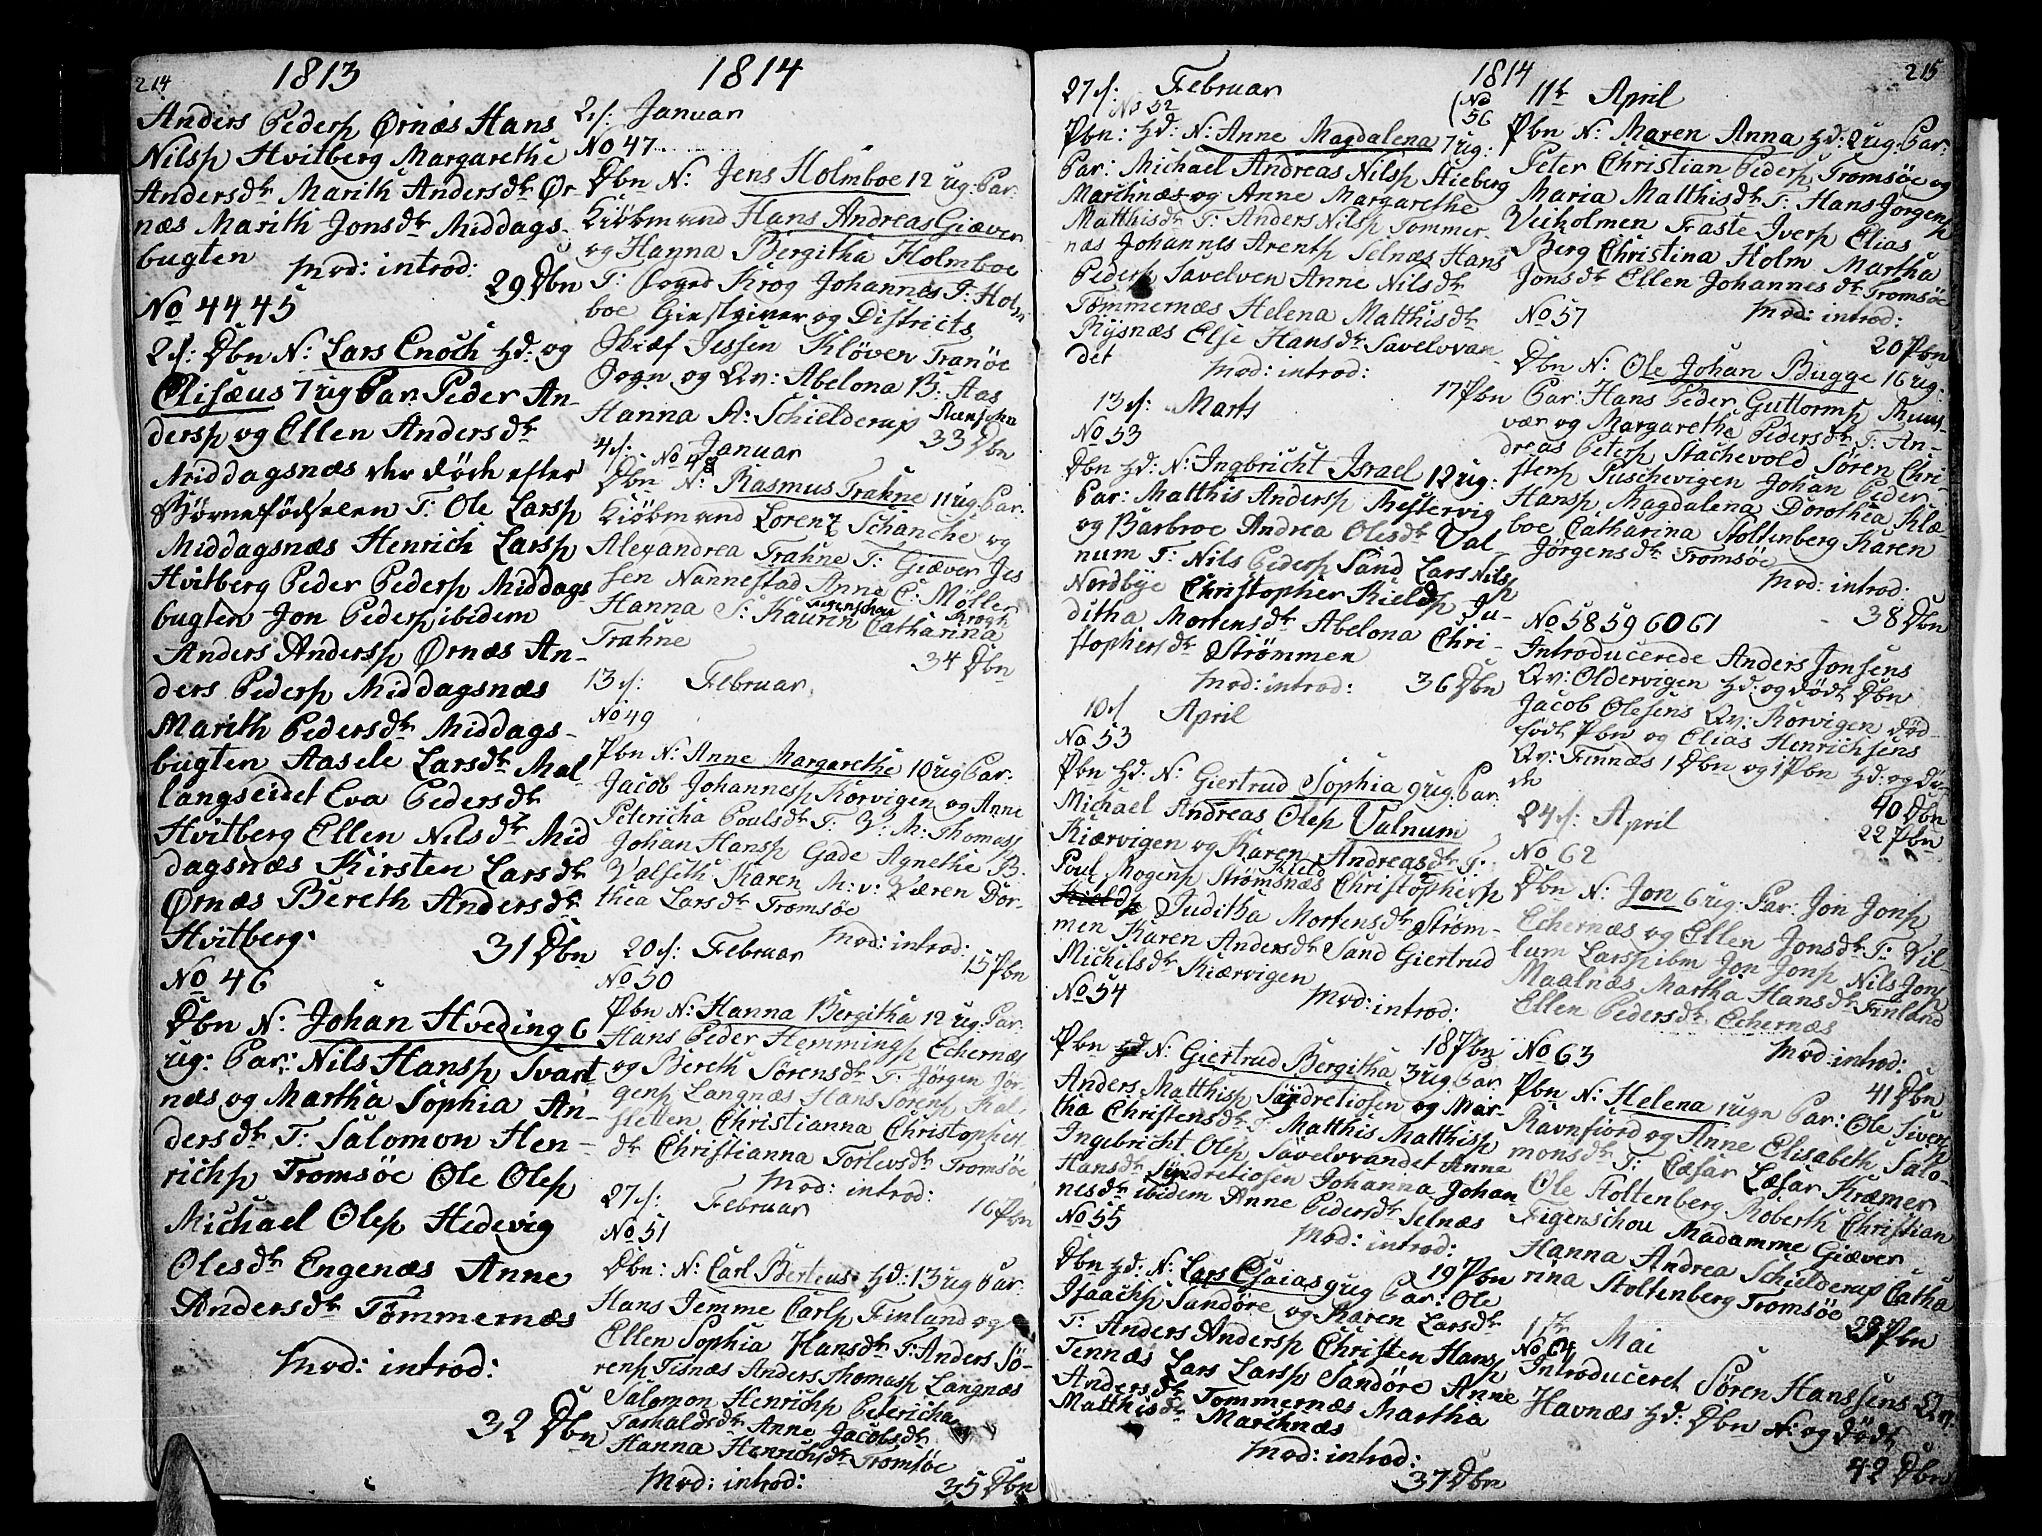 214
1813
Anders Pedersp Ørnæs Hans
Nilsp Hvitberg Margarethe
Andersdtr Marith Andersdtr Ør
næs Marith Jonsdtr Middags-
bugten
Mod: introd:
29 Dbn
No 44 45
2 s: Dbn N: Lars Enoch hd: og
Elisæus 7 ug Par: Peder An-
dersp og Ellen Andersdtr
Middagsnæs der døde efter
Børnefödselen T: Ole Larsp
Middagsnæs Henrich Larsp
Hvitberg Peder Pedersp Middags
bugten Jon Pedersp ibidem
Anders Andersp Ørnæs An-
ders Pedersp Middagsnæs
Marith Pedersdtr Middags-
bugten Aasele Larsdtr Mal-
langseidet Eva Pedersdtr
Hvitberg Ellen Nilsdtr Mid
dagsnæs Kirsten Larsdtr
Ørnæs Bereth Andersdtr
Hvitberg.
31 Dbn
No 46
Dbn N: Johan Hveding 6
ug: Par: Nils Hansp Svart
næs og Martha Sophia An-
dersdtr T: Salomon Hen-
richp Tromsöe Ole Olep
Michael Olep Hedevig
Olesdtr Engenæs Anne
Andersdtr Tömmernæs
Mod: introd:
32 Dbn
1814
2 s: Januar
No 47
Dbn N: Jens Holmboe 12 ug: Par:
Kiöbmand Hans Andreas Giæver
og Hanna Bergitha Holmboe
T: Foged Krog Johannes J: Holm
boe Giestgiver og Districts
Skief Jessen Klöven Tranöe
Sogn og Qv: Abelona B: Aas
Hanna A: Schielderup
33 Dbn
4 s: Januar
No 48
Dbn N: Rasmus Trahne 11 ug: Par:
Kiöbmand Lorenz Schanche og
Alexandrea Trahne T: Giæver Jes
sen Nannestad Anne C: Møller
Hanna S: Kaurin Catharina Krogh
Trahne
34 Dbn
13 s: Februar
No 49
Pbn N: Anne Margarethe 10 ug Par:
Jacob Johannesp Korvigen og Anne
Petericha Poulsdtr T: V: M: Thomasp
Johan Hansp Gade Agnethe B.
Valseth Karen M: v: Væren Dor-
thea Larsdtr Tromsöe
Mod: introd:
20 s: Februar
15 Pbn
No 50
Pbn N: Hanna Bergitha 12 ug: Par:
Hans Peder Hemmingsp Echernæs
og Bereth Sörensdtr T: Jörgen Jör-
gensp Langnæs Hans Sörensp Kal-
sletten Christianna Christophers
dtr Christianna Torlevsdtr Tromsöe
Mod: introd:
27 s: Februar
16 Pbn
No 51
Dbn: N: Carl Berteus hd: 13 ug Par:
Hans Jemme Carlsp Finland og
Ellen Sophia Hansdtr T: Anders Sö-
rensp Tisnæs Anders Thomasp Langnæs
Salomon Henrichp Petericha
Tarhaldsdtr Anne Jacobsdtr
Hanna Henrichsdtr Tromsöe
Mod: introd:
35 Dbn
27 s: Februar
No 52
Pbn: hd: N: Anne Magdalena 7 ug:
Par: Michael Andreas Nilsp Hieberg
Marchnæs og Anne Margarethe
Matthisdtr T: Anders Nilsp Tommer-
næs Johannes Arentsp Selnæs Hans
Pedersp Savelven Anne Nilsdtr
Tømmernæs Helena Matthisdtr
Rysnæs Else Hansdtr Savelvvan
det
Mod: introd:
17 Pbn
13 s: Marts
No 53
Dbn hd: N: Ingbricht Israel 12 ug:
Par: Matthis Andersp Mestervig
og Barbroe Andrea Olesdtr Val-
num T: Nils Pedersp Sand Lars Nilsp
Nordbye Christopher Kieldsp Ju-
ditha Mortensdtr Abelona Chri-
stophersdtr Strömmen
Mod: introd:
36 Dbn
10 s April
No 53
Pbn hd: N: Giertrud Sophia 9 ug: Par:
Michael Andreas Olep Valnum
Kiærvigen og Karen Andreasdtr T:
Poul Mogensp Strømsnæs Kield Christophersp
Juditha Mortensdtr Ström-
men Karen Andersdtr Sand Giertrud
Michilsdtr Kiærvigen
Mod: introd:
No 54
18 Pbn
Pbn N: Giertrud Bergitha 3 ug Par
Anders Matthisp Syndretiosen og Mar-
tha Christensdtr T: Matthis Matthisp
Ingebricht Olep Savelvvandet Anne
Hansdtr Syndretiosen Johanna Johan
nesdtr ibidem Anne Pedersdtr Selnæs
No 55
Mod: introd:
19 Pbn
Dbn hd: N: Lars Esaias 9 ug Par: Ole
Isaachsp Sandöre og Karen Larsdtr
T: Anders Andersp Christen Hansp
Tennæs Lars Larsp Sandöre Anne
Andersdtr Tommernæs Martha
Matthisdtr Marchnæs
Mod: introd:
37 Dbn
1814
215
No 56
11te April
Pbn N: Maren Anna hd: 2 ug: Par:
Peter Christian Pedersp Tromsöe og
Maria Matthisdtr T: Hans Jörgensp
Vicholmen Faste Iversp Elias
Berg Christina Holm Martha
Jonsdtr Ellen Johannesdtr Tromsöe
No 57
Mod: introd:
20 Pbn
Dbn N: Ole Johan Bugge 16 ug:
Par: Hans Peder Guttormsp Muus-
vær og Margaretha Pedersdtr T: An-
dreas Petersp Stachevold Sören Chri-
stensp Puschevigen Johan Peder
Hansp Magdalena Dorothia Klæ-
boe Catharina Stoltenberg Karen
Jörgensdtr Tromsöe
Mod: introd:
No 58 59 60 61
38 Dbn
Introducerede Anders Jonsens
Qv: Oldervigen hd: og dödt Dbn
Jacob Olesens Qv: Korvigen död-
födt Pbn og Elias Henrichsens
Qv: Finnæs 1 Dbn og 1 Pbn hd: og dö-
de
40 Dbn
22 Pbn
24 s: April
No 62
Dbn N: Jon 6 ug: Par: Jon Jonsp
Echernæs og Ellen Jonsdtr T: Vil-
lum Larsp ibm Jon Jonsp Nils Jonsp
Maalnæs Martha Hansdtr Finland
Ellen Pedersdtr Echernæs
No 63
Mod: introd:
41 Dbn
Pbn N: Helena 1 ugn Par: Ole Sivertsp
Ravnfiord og Anne Elisabeth Salo-
monsdtr T: Cæsar Læsar Kræmer
Ole Stoltenberg Roberth Christian
Figenschou Madamme Giæver
Hanna Andrea Schielderup Catha
rina Stoltenberg Tromsöe
23 Pbn
1ste Mai
No 64
Introduceret Sören Hanssens Qv:
Havnæs hd: Dbn N: og dödt
42 Dbn